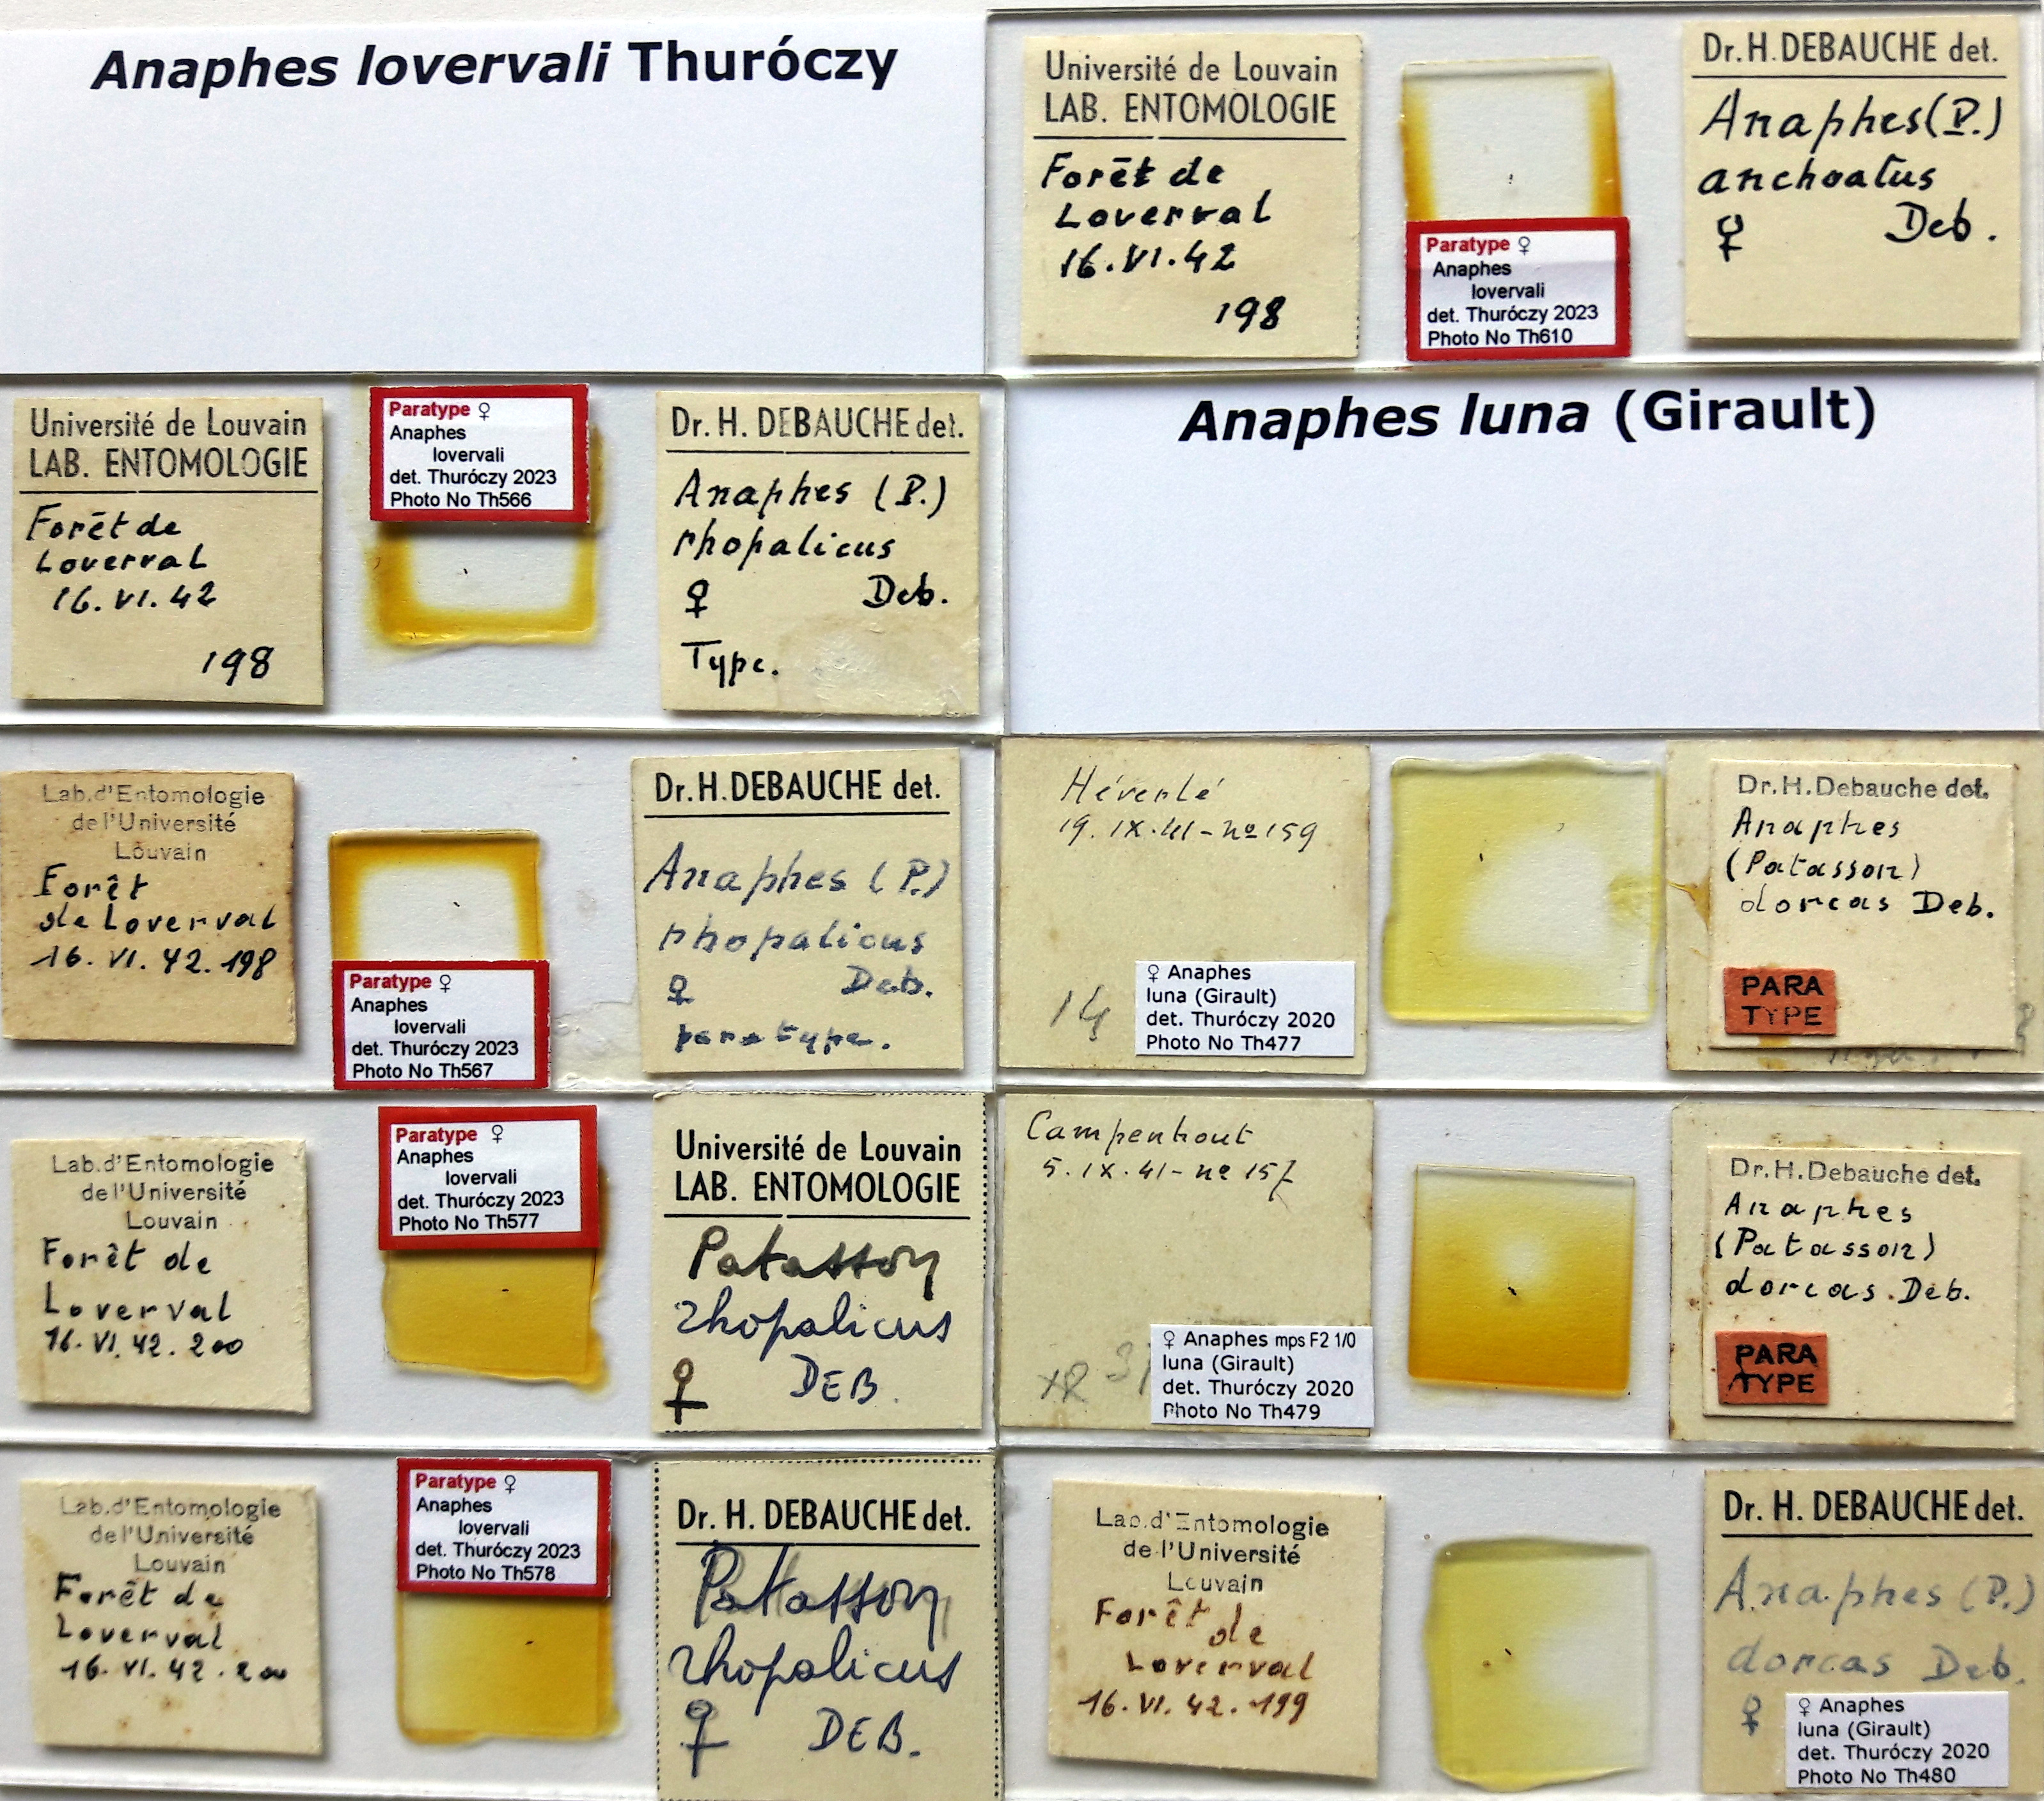 Anaphes lovervali Thuróczy
Université de Louvain
LAB. ENTOMOLOGIE
Forêt de
Loverval
16.VI.42
198
Paratype ♀
Anaphes
lovervali
det. Thuróczy 2023
Photo No Th610
Dr. H. DEBAUCHE det.
Anaphes (P.)
anchoatus
♀ Deb.
Université de Louvain
LAB. ENTOMOLOGIE
Forêt de
Loverval
16.VI.42
198
Paratype ♀
Anaphes
lovervali
det. Thuróczy 2023
Photo No Th566
Dr. H. DEBAUCHE det.
Anaphes (P.)
rhopalicus
♀ Deb.
Type.
Anaphes luna (Girault)
Lab.d'Entomologie
de l'Université
Louvain
Forêt
de Loverval
16. VI. 42. 198
Paratype ♀
Anaphes
lovervali
det. Thuróczy 2023
Photo No Th567
Dr. H. DEBAUCHE det.
Anaphes (P.)
rhopalicus
♀ Deb.
paratype.
Héverlé
19. IX. 41 - no 159
14
♀ Anaphes
luna (Girault)
det. Thuróczy 2020
Photo No Th477
Dr. H. Debauche det.
Anaphes
(Patasson)
dorcas Deb.
PARA
TYPE
Lab.d'Entomologie
de l'Université
Louvain
Forêt de
Loverval
16. VI. 42. 200
Paratype ♀
Anaphes
lovervali
det. Thuróczy 2023
Photo No Th577
Université de Louvain
LAB. ENTOMOLOGIE
Patasson
rhopalicus
♀ DEB.
Campenhout
5. IX. 41 - no 157
♀ Anaphes mps F2 1/0
luna (Girault)
det. Thuróczy 2020
Photo No Th479
Dr. H. Debauche det.
Anaphes
(Patasson)
dorcas. Deb.
PARA
TYPE
Lab.d'Entomologie
de l'Université
Louvain
Forêt de
Loverval
16. VI. 42. 200
Paratype ♀
Anaphes
lovervali
det. Thuróczy 2023
Photo No Th578
Dr. H. DEBAUCHE det.
Patasson
rhopalicus
♀ DEB.
Lab.d'Entomologie
de l'Université
Louvain
Forêt de
Loverval
16. VI. 42. 199
Dr. H. DEBAUCHE det.
Anaphes (P.)
dorcas Deb.
♀
♀ Anaphes
luna (Girault)
det. Thuróczy 2020
Photo No Th480